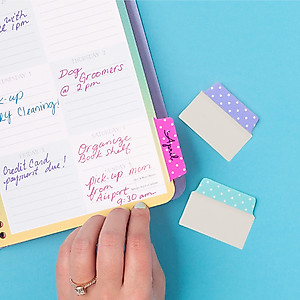 with
ce 1pm
Dog
Groomers
@ 2pm
ck-up
ky Cleaning!
April
Organize
Book shelf
Credit Card
payment due!
Pick-up mom
from
Airport
9:30 am